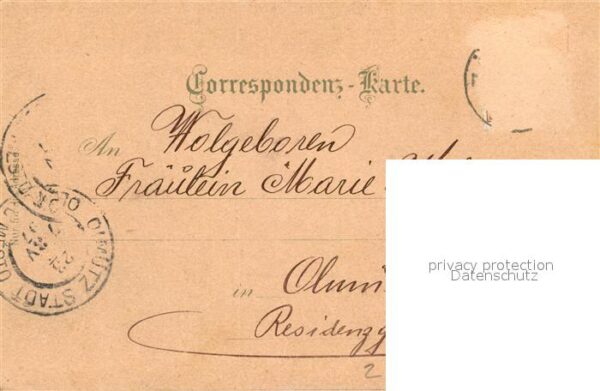 Correspondenz-Karte.
An Wolgeboren
Fräulein Marie
in
Residenzg
2
MÜTZ STADT
privacy protection
Datenschutz